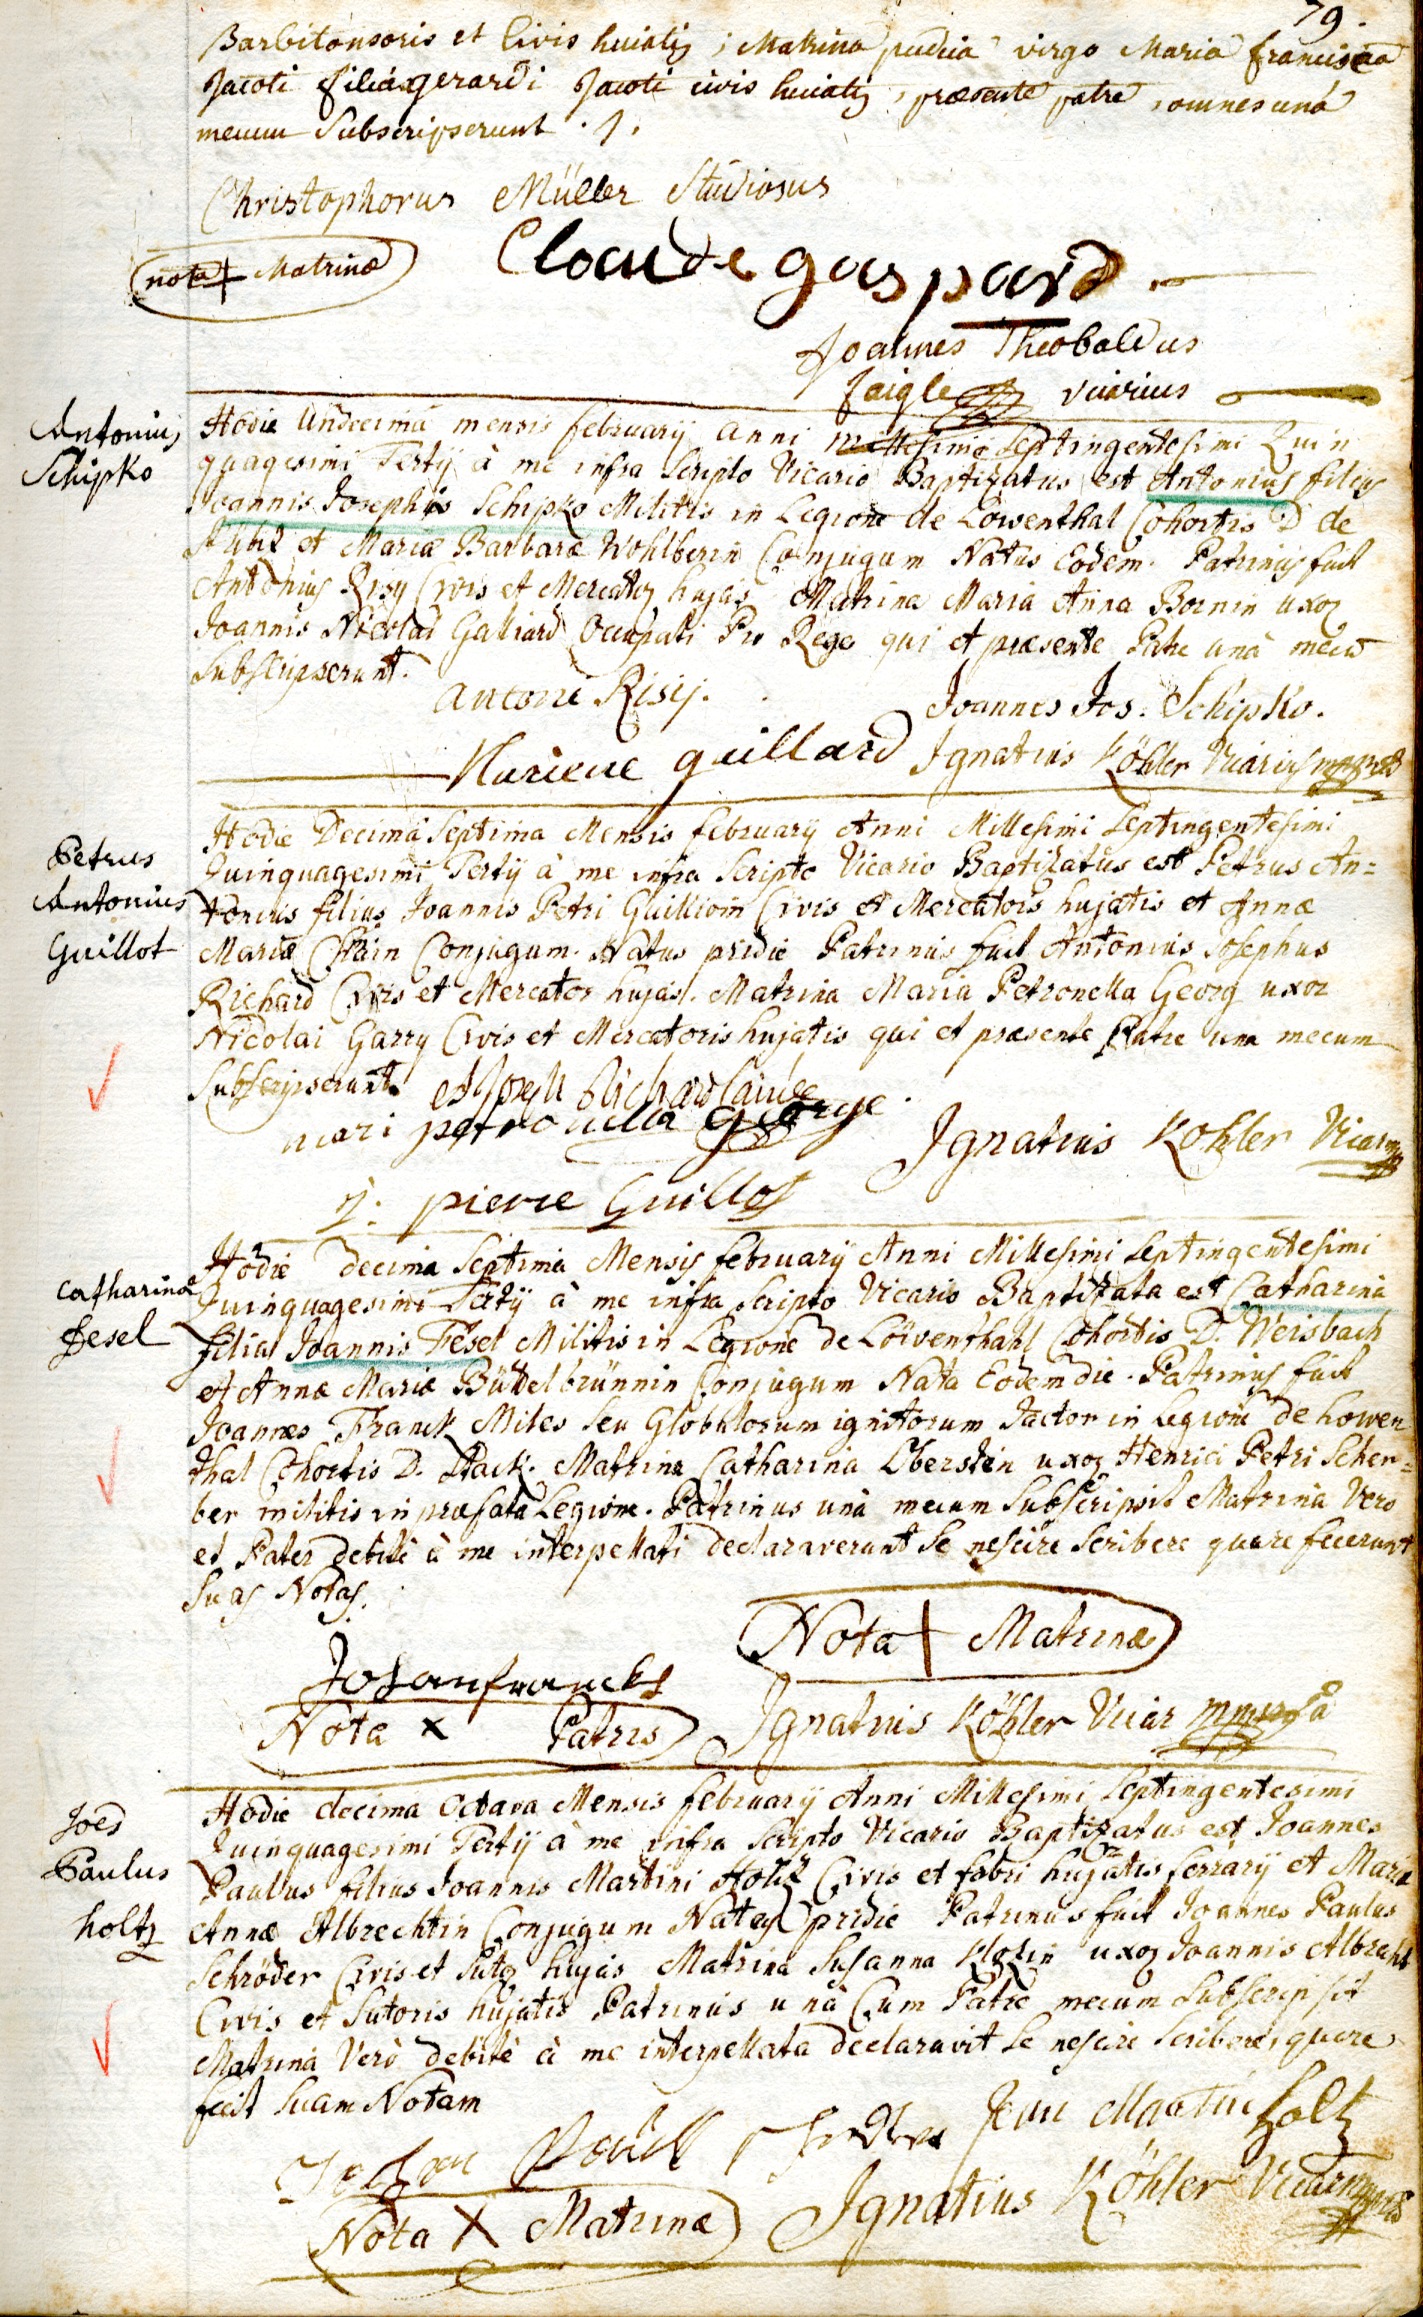 79.
Barbitonsoris et Civis huiatis; Matrina pudica virgo Maria francisca
Jacoti filia gerardi Jacoti civis huiatis, præsente patre, omnes unà
mecum Subscripserunt
Christophorus Müller Studiosus
nota + Matrinæ
Claude gaspard
Joannes Theobaldus
faigle vicarius
Antonius
Schipko
Hodie Undecimâ mensis february anni millesimi Septingentesimi Quin
quagesimi Tertÿ à me infra Scripto Vicario Baptizatus est Antonius filius
Joannis Josephis Schipko Militis in Legione de Löwenthal Cohortis D de
et Mariæ Barbaræ Wohlberin Conjugum Natus Eodem. Patrinus fuit
Antonius Risy Civis et Mercator hujas Matrina Maria Anna Bornin uxor
Joannis Nicolai Galliard Occupati Pro Rege qui et præsente Patre unà mecum
Subscripserunt.
antone Risij.
Joannes Jos. Schipko.
guillard
Ignatius Köhler Vicarius
Petrus
Antonius
Guillot
Hodie Decimâ Septima Mensis february Anni Millesimi Septingentesimi
Quinquagesimi Tertÿ à me infra Scripto Vicario Baptizatus est Petrus An=
tonius filius Joannis Petri Civis et Mercatoris hujatis et Annæ
Mariæ Conjugum. Natus pridie Patrinus fuit Antonius Josephus
Richard Civis et Mercator hujas. Matrina Maria Petronella Georg uxor
Nicolai Garry Civis et Mercatoris hujatis qui et præsente Patre una mecum
Subscripserunt.
Joseph Richard
mari petronella george.
Ignatius Kohler Vicarius
J: pierre Guillot
Catharina
fesel
Hodie decima Septima Mensis february Anni Millesimi Septingentesimi
Quinquagesimi Tertÿ à me infra Scripto Vicario Baptizata est Catharina
filia Joannis Fesel Militis in Legione de Löwenthahl Cohortis D. Weisbach
et Annæ Mariæ Büttelbrünnin Conjugum Nata Eodem die. Patrinus fuit
Joannes Franck Miles seu Globulorum ignitorum Jactor in Legione de Lowen
thal Cohortis D. Stack. Matrina Catharina Obersten uxor Henrici Petri Scher=
ber militis in præfata Legione. Patrinus unà mecum Subscripsit Matrina Vero
et Pater debitè à me interpellati declaraverunt se nescire Scribere quare fecerunt
Suas Notas.
Nota + Matrinæ
Johan francks
Nota x Patris
Ignatius Köhler Vicar
Joes
Paulus
holtz
Hodie decima Octava Mensis february Anni Millesimi Septingentesimi
Quinquagesimi Tertÿ à me infra Scripto Vicario Baptizatus est Joannes
Paulus filius Joannis Martini Holtz Civis et fabri hujatis ferrarÿ et Maria
Annæ Albrechtin Conjugum Natus pridie Patrinus fuit Joannes Paulus
Schröder Civis et Sutor hujas Matrina Susanna Klotzin uxor Joannis Albrecht
Civis et Sutoris hujatis Patrinus unà Cum Patre mecum Subscripsit
Matrina Verò debitè à me interpellata declaravit se nescire Scribere, quare
fecit Suam Notam
Jean Martin holtz
Johan Paull
Nota X Matrinæ
Ignatius Köhler Vicar